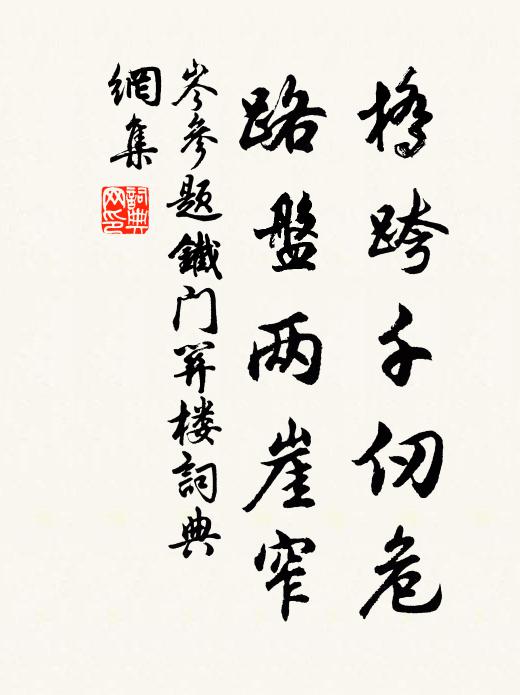 橋跨千仞危
路盤两崖窄
岑參題鐵门關楼詞典
網集
詞典网印